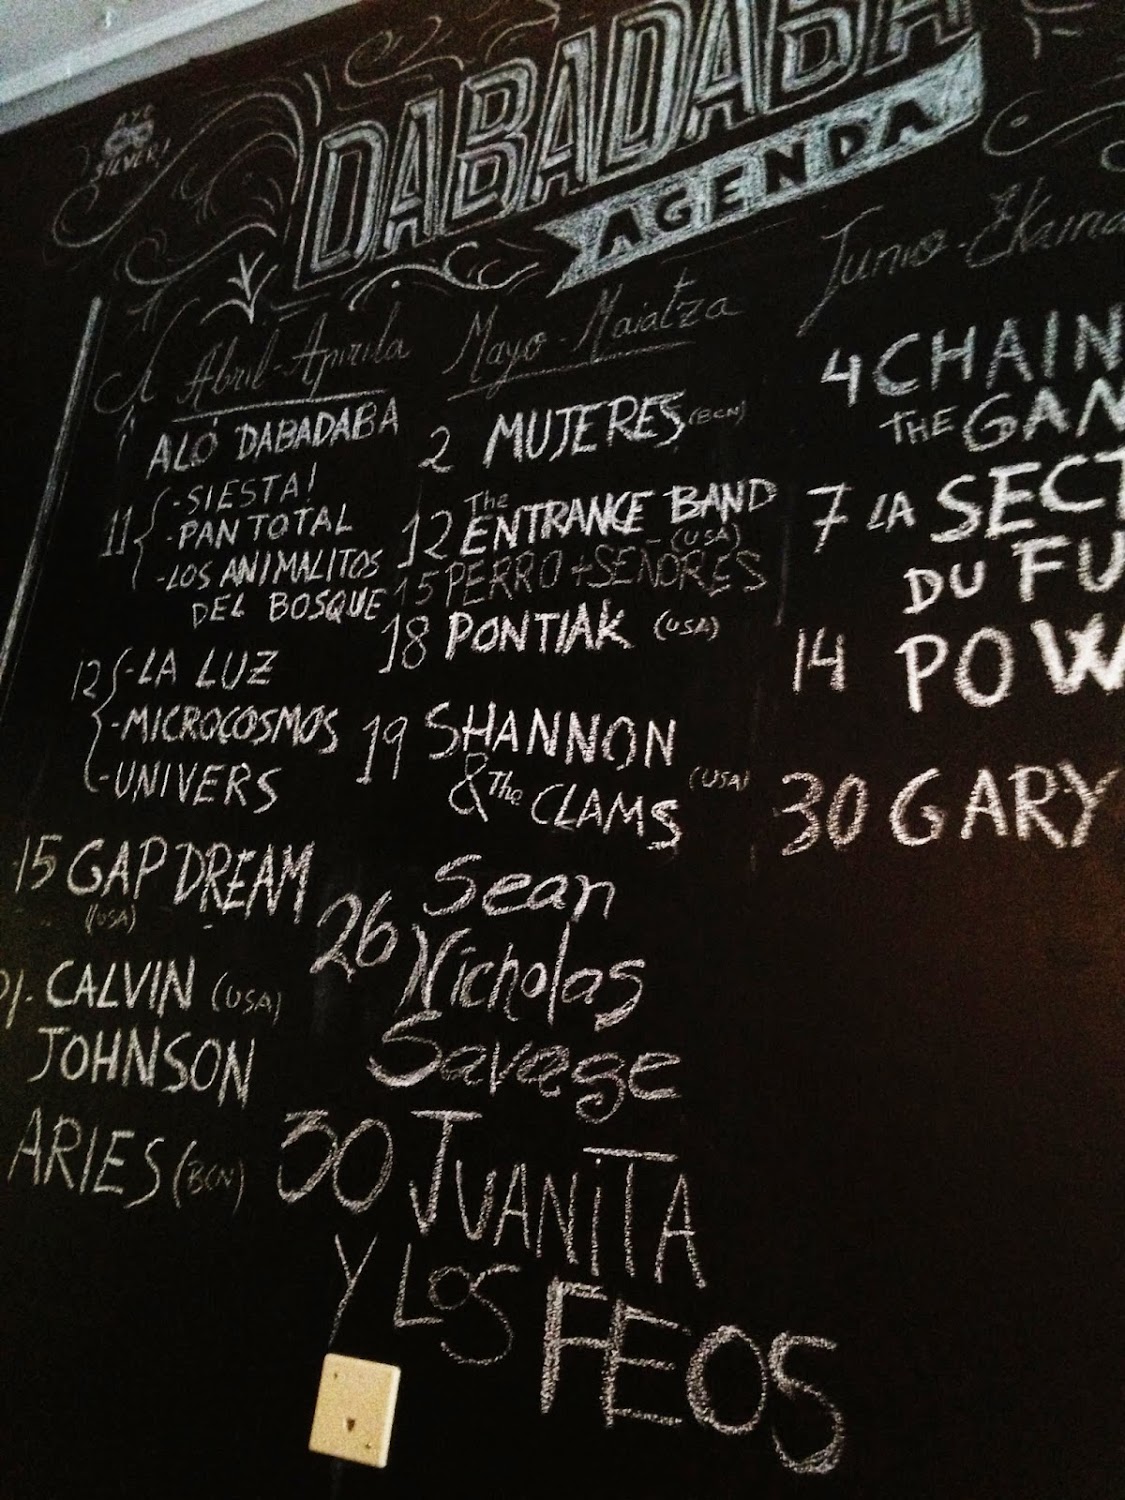 AYC
SILVER!
DABADABA
AGENDA
Abril-Apirila
ALÓ DABADABA
11 -SIESTA!
-PAN TOTAL
-LOS ANIMALITOS
DEL BOSQUE
12 -LA LUZ
-MICROCOSMOS
-UNIVERS
15 GAP DREAM
(USA)
CALVIN (USA)
JOHNSON
ARIES (BCN)
Mayo-Maiatza
2 MUJERES (BCN)
12 The ENTRANCE BAND
(USA)
15 PERRO + SEÑORES
18 PONTIAK (USA)
19 SHANNON
& The CLAMS (USA)
26 Sean
Nicholas
Savage
30 JUANITA
Y LOS FEOS
Junio-Ekaina
4 CHAIN
THE GAN
7 LA SECT
DU FU
14 POW
30 GARY